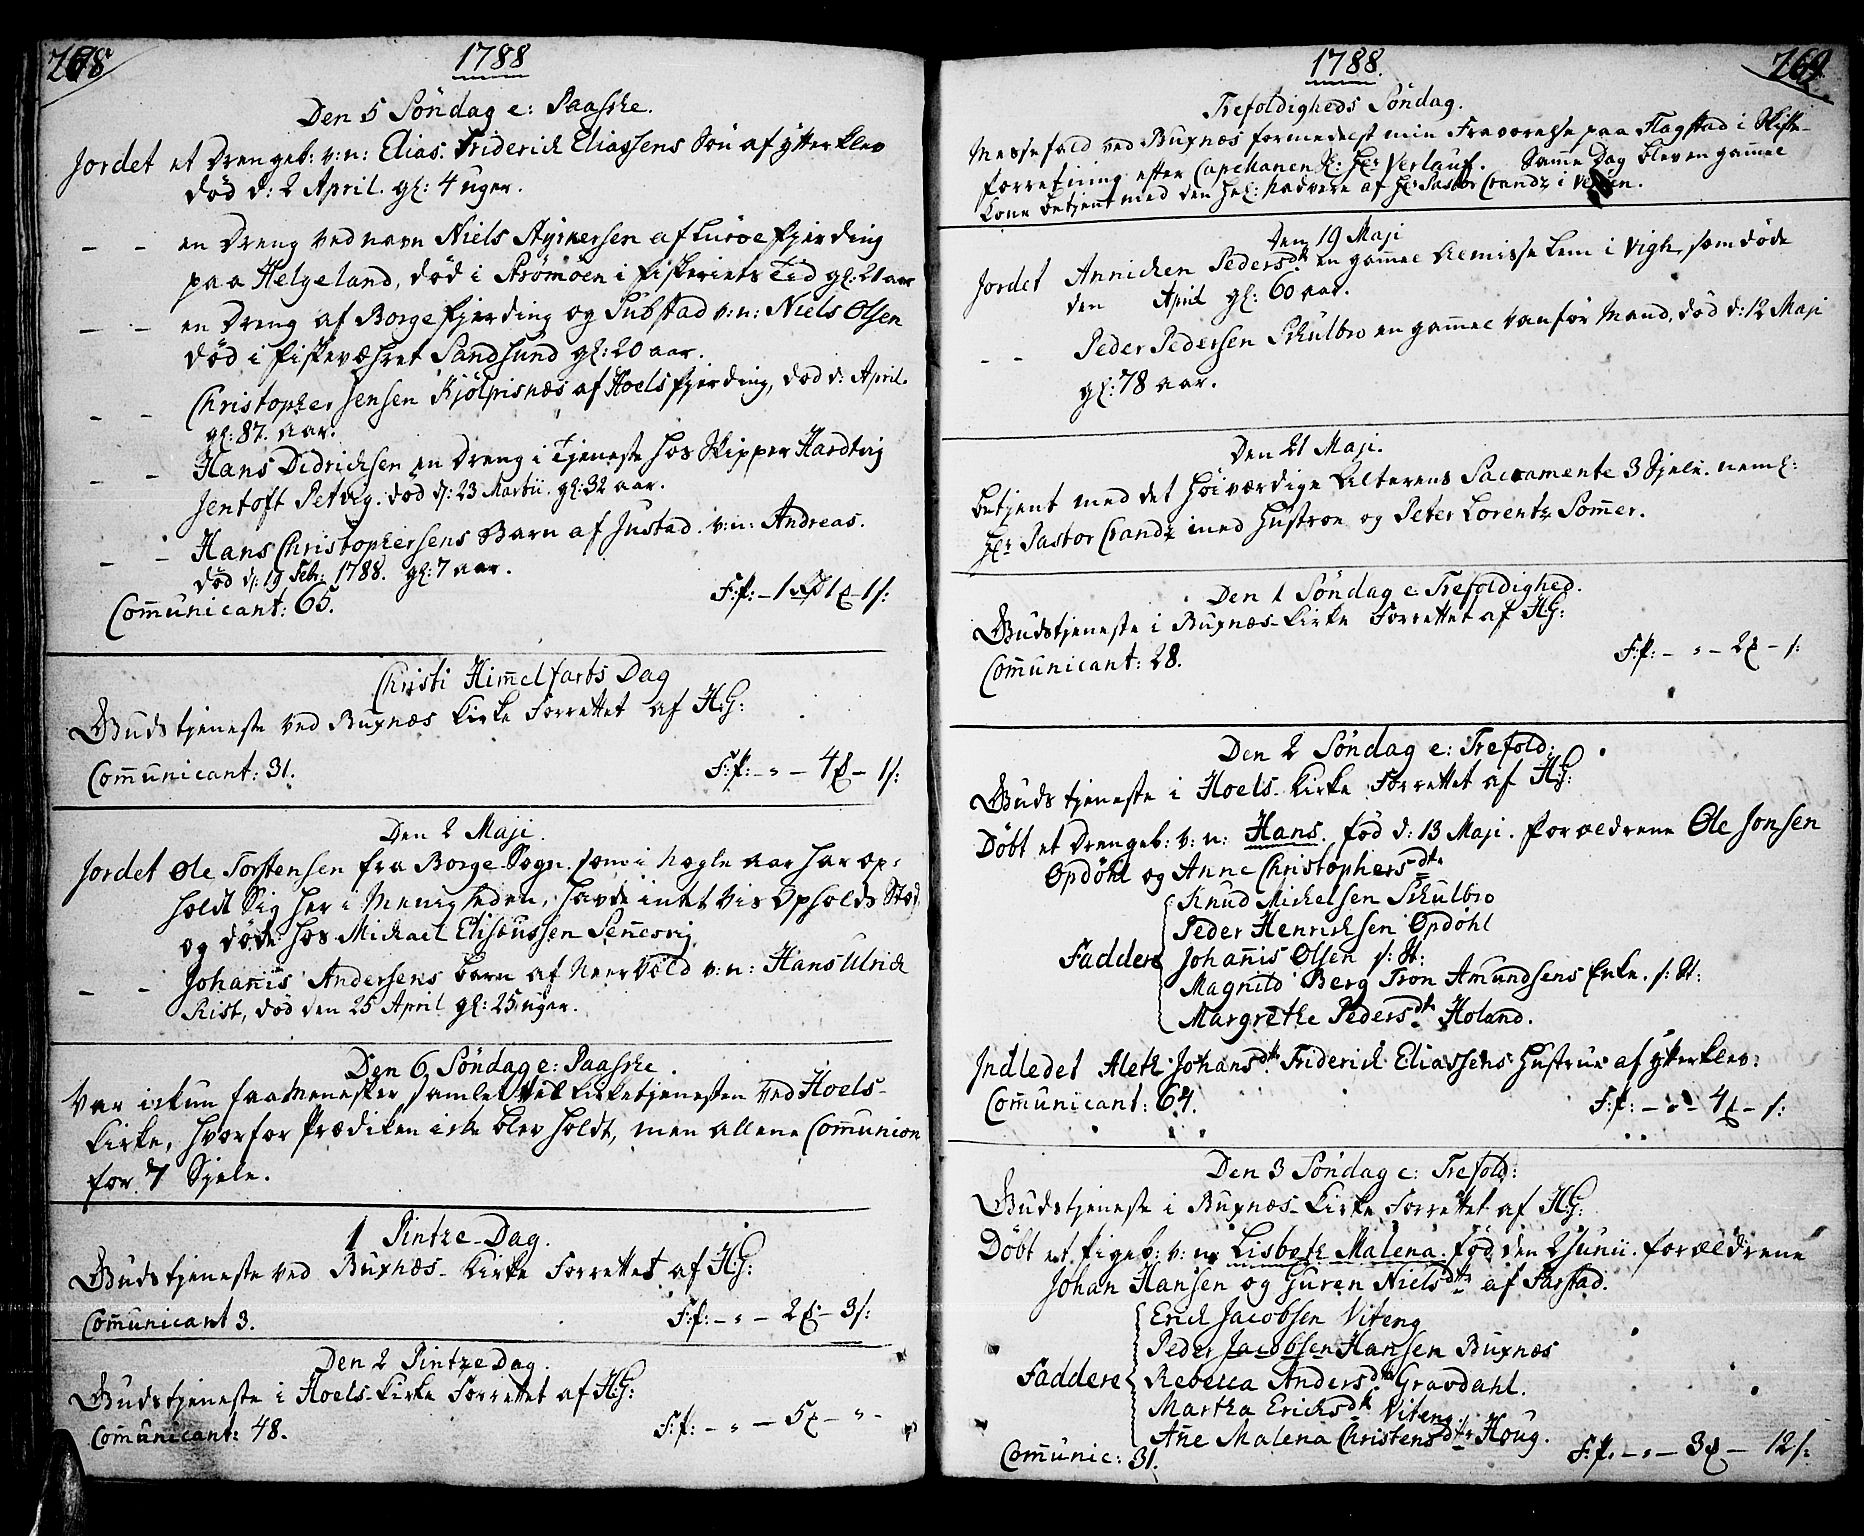 268
1788
Den 5 Söndag e: Paasske.
Jordet et Drengeb: v: n: Elias. Friderich Eliassens Sön af ytterklev
död d: 2 April. gl: 4 uger.
- - en Dreng ved navn Niels af Luröe fjerding
paa Helgeland, död i Strömöen i fiskeriets Tid gl: 21 aar
- - en Dreng af Borge fjerding og Substad v: n: Niels Olsen
död i fiskeværet Sandsund gl: 20 aar.
- - Christopher Jensen Kjölpisnæs af Hoels fjerding, död d: April.
gl: 87. aar.
- - Hans Didrichsen en Dreng i Tjeneste hos Skipper Hardtvig
Jentoft Petvig. död d: 23 Martii. gl: 32 aar.
- - Hans Christophersens Barn af Justad. v: n: Andreas.
död d: 19 Febr: 1788. gl: 7 aar.
Com̄unicant: 65.
F: f: - 1 1 - 1 s:
Christi Him̄elfarts Dag
Gudstjeneste ved Buxnæs Kirke Forrettet af H: G:
Com̄unicant: 31.
F: f: - " - 4 - 1 s:
Den 2 Maji.
Jordet Ole Torstensen fra Borge-Sogn, som i nogle aar har op-
holdt Sig her i Menigheden, havde intet vis Opholds Sted
og döde hos Michael Elisæussen Sennesvig.
- - Johan̄is Andersens barn af Neervold v: n: Hans Ulrich
Rist, död den 25 April gl: 25 uger.
Den 6 Söndag e: Paasske.
Var ickun faa Menesker samlet ved Kirketjenesten ved Hoels-
Kirke, hvorfor Prædiken icke blev holdt, men allene Com̄union
for 7 Sjele.
1 Pintze-Dag.
Gudstjeneste ved Buxnæs-Kirke Forrettet af H: G:
Com̄unicant 3.
F: f: - " - 2 - 3 s:
Den 2 Pintze Dag.
Gudstjeneste i Hoels-Kirke Forrettet af H: G:
Com̄unicant: 48.
F: f: - " - 5 - " -
1788.
269
Trefoldigheds Söndag.
Messefald ved Buxnæs formedelst min Fraværelse paa Flagstad i Skifte-
forretning efter Capellanen Hr: Verlauf. Sam̄e Dag blev en gammel
Kone betjent med den hel: Nadvere af Hr Pastor Crandz i
Den 19 Maji
Jordet Annichen Pedersdtr en gamel Almisse Lem i Vigh, som döde
den April gl: 60 aar.
- - Peder Pedersen Skulbro en gammel vanför Mand, död d: 12 Maji
gl: 78 aar.
Den 21 Maji.
Betjent med det höiværdige Alterens Sacramente 3 Sjele. neml:
Hr Pastor Crandz med Hustroe og Peter Lorentz Som̄er.
Den 1 Söndag e: Trefoldighed.
Gudstjeneste i Buxnæs-Kirke Forrettet af H: G:
Com̄unicant: 28.
F: f: - " - 2 - s:
Den 2 Söndag e: Trefold:
Gudstjeneste i Hoels-Kirke Forrettet af H: G:
Döbt et Drengeb: v: n: Hans. föd d: 13 Maji. forældrene Ole Jonsen
Opdöhl og Anne Christophersdtr
Faddere
Knud Michelsen Skulbro
Peder Henrichsen Opdöhl
Johan̄is Olsen s: St:
Magnild Berg Tron Amundsens Enke. s: St:
Margrethe Pedersdtr Holand.
Indledet Aleth Johansdtr Friderich Eliassens Hustrue af ytterklev:
Com̄unicant: 64.
F: f: - " - 4 - s:
Den 3 Söndag e: Trefold:
Gudstjeneste i Buxnæs-Kirke Forrettet af H: G:
Döbt et Pigeb: v: n: Lisbeth Malena. föd den 2 Junii. forældrene
Johan Hansen og Guren Nielsdtr af Farstad.
Faddere
Erich Jacobsen Viteng
Peder Jacobsen Hansen Buxnæs
Rebecca Andersdtr Gravdahl.
Martha Erichsdtr Viteng.
An̄e Malena Christensdtr Houg.
Com̄unic: 31.
F: f: - " - 3 - 12 s: